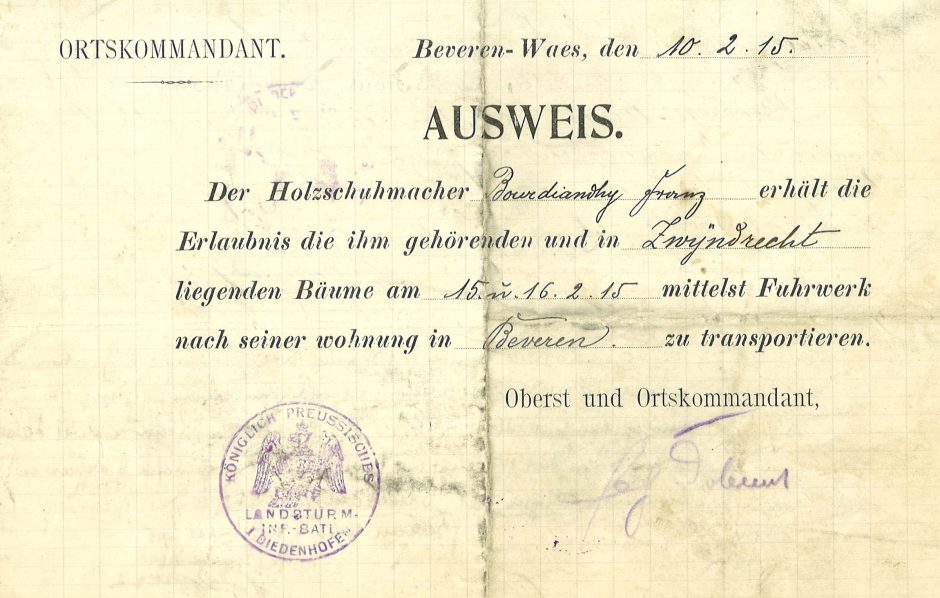 ORTSKOMMANDANT.
Beveren-Waes, den 10. 2. 15.
AUSWEIS.
Der Holzschuhmacher Franz erhält die
Erlaubnis die ihm gehörenden und in Zwÿndrecht
liegenden Bäume am 15. u. 16. 2. 15 mittelst Fuhrwerk
nach seiner wohnung in Beveren. zu transportieren.
Oberst und Ortskommandant,
KÖNIGLICH PREUSSISCHES
LANDSTURM-
INF.-BATL.
I DIEDENHOFEN